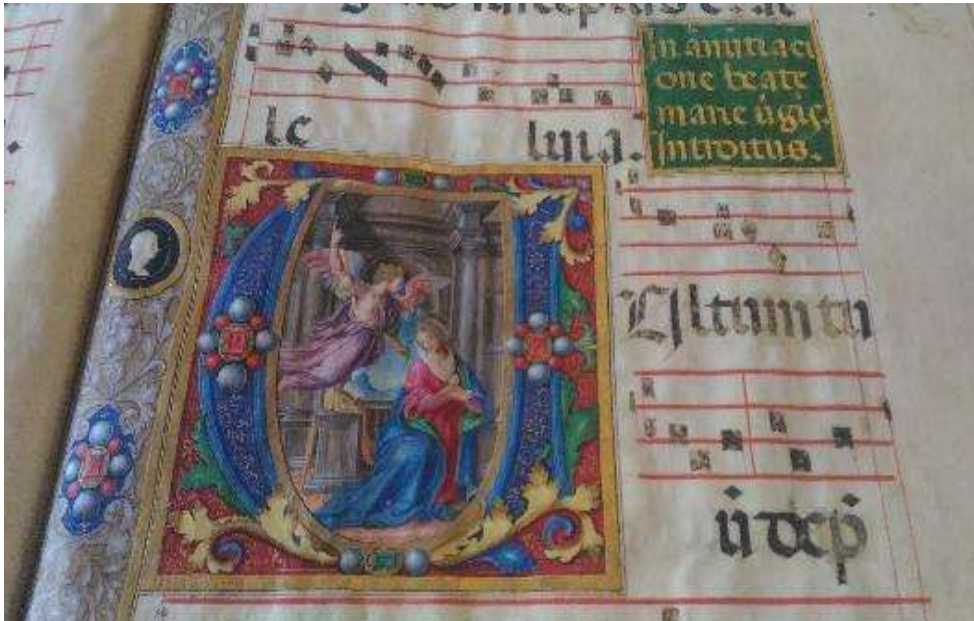 le luia.
In anūtiaci
one beate
marie ūgis.
Introitus.
V
Ultum tu
ū dep̄